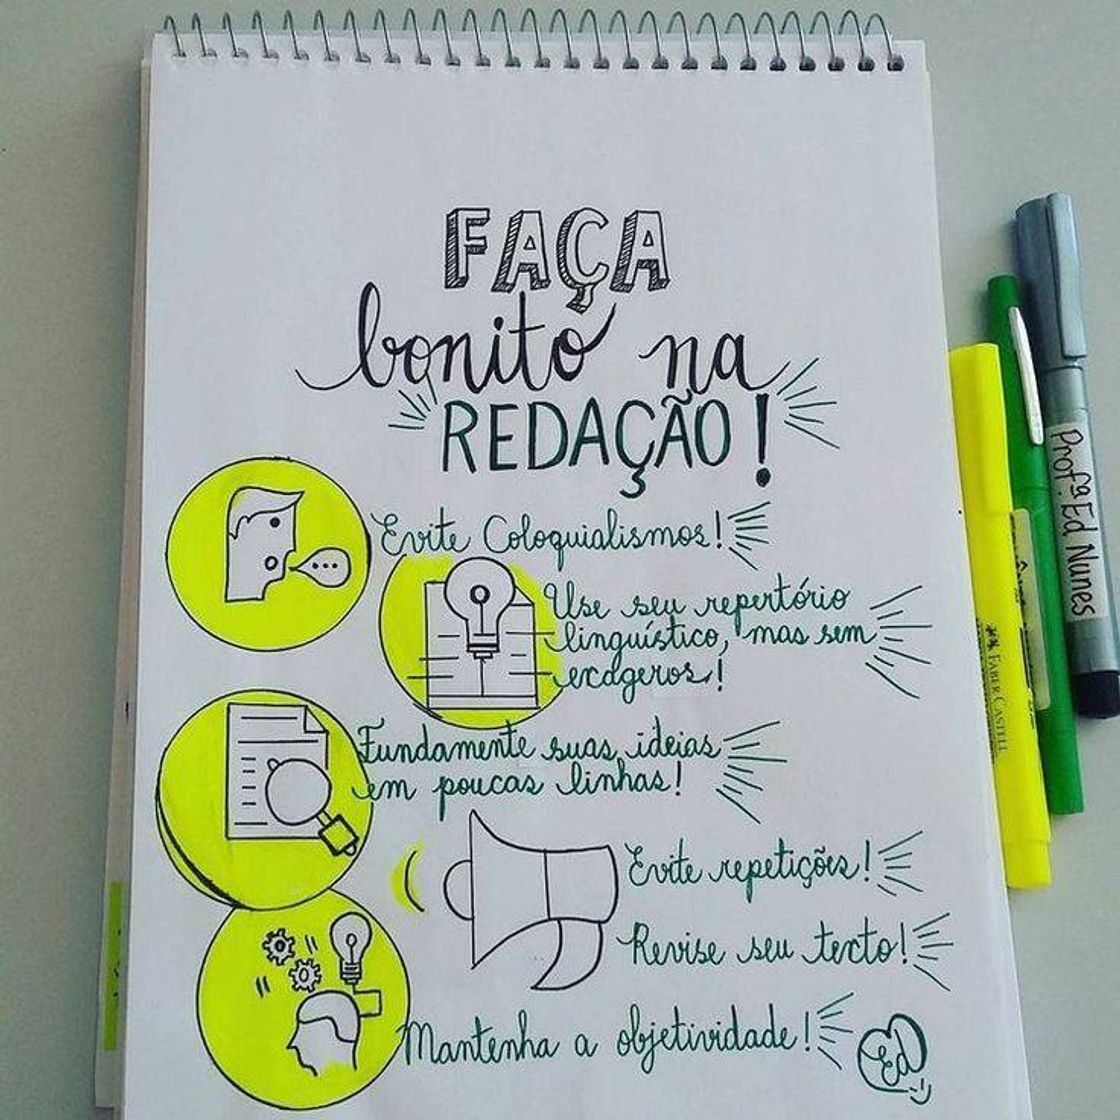 FAÇA
bonito na
REDAÇÃO!
Evite Coloquialismos!
Use seu repertório
linguístico, mas sem
exageros!
Fundamente suas ideias
em poucas linhas!
Evite repetições!
Revise seu texto!
Mantenha a objetividade!
Ed
Profª. Ed Nunes
FABER CASTELL